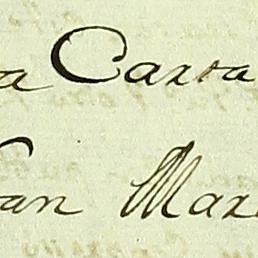 a Carta
an Mar